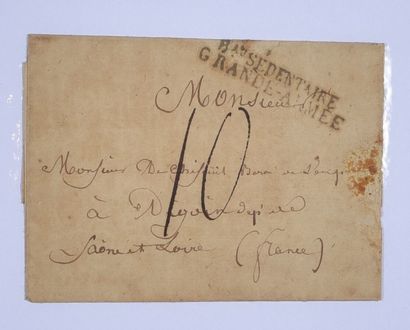 Bau SEDENTAIRE
GRANDE-ARMÉE
Monsieur
10
Monsieur De
à Digoin dept de
Saône et Loire (france)